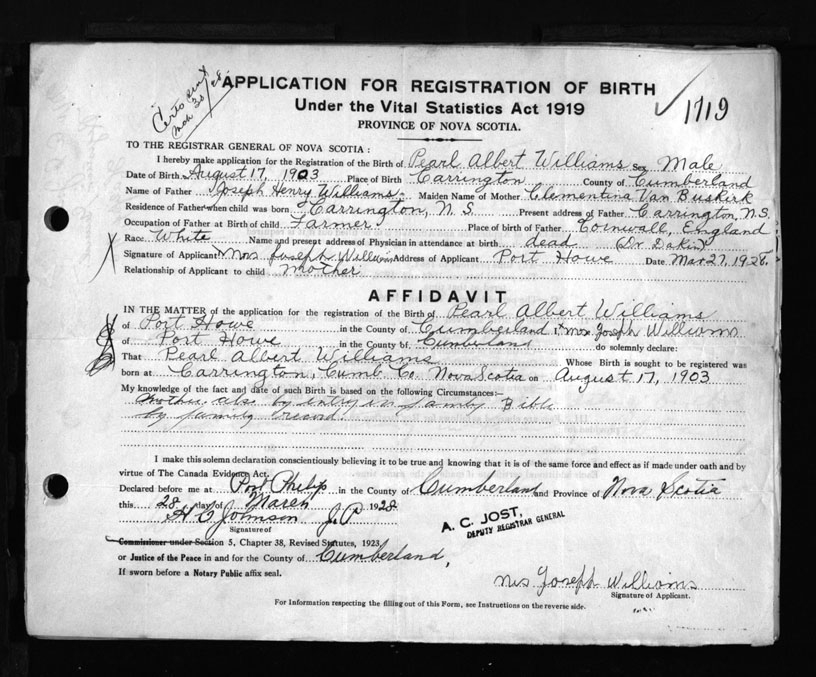 Cert sent
Mch 30/28
APPLICATION FOR REGISTRATION OF BIRTH
Under the Vital Statistics Act 1919
PROVINCE OF NOVA SCOTIA.
1719
TO THE REGISTRAR GENERAL OF NOVA SCOTIA:
I hereby make application for the Registration of the Birth of Pearl Albert Williams Sex Male
Date of Birth August 17, 1903 Place of Birth Carrington County of Cumberland
Name of Father Joseph Henry Williams Maiden Name of Mother Clementina Van Buskirk
Residence of Father when child was born Carrington, N.S. Present address of Father Carrington, N.S.
Occupation of Father at Birth of child Farmer Place of birth of Father Cornwall, England
Race White Name and present address of Physician in attendance at birth dead (Dr Dakin)
Signature of Applicant Mrs Joseph Williams Address of Applicant Port Howe Date Mar 27, 1928.
Relationship of Applicant to child mother
AFFIDAVIT
IN THE MATTER of the application for the registration of the Birth of Pearl Albert Williams
of Port Howe in the County of Cumberland I, Mrs. Joseph Williams
of Port Howe in the County of Cumberland do solemnly declare:
That Pearl Albert Williams Whose Birth is sought to be registered was
born at Carrington, Cumb. Co. Nova Scotia on August 17, 1903
My knowledge of the fact and date of such Birth is based on the following Circumstances:—
Mother also by entry in family Bible
by family record.
I make this solemn declaration conscientiously believing it to be true and knowing that it is of the same force and effect as if made under oath and by
virtue of The Canada Evidence Act.
Declared before me at Port Philip in the County of Cumberland and Province of Nova Scotia
this 28 day of March 1928
H O Johnson J.P.
Signature of
A. C. JOST,
DEPUTY REGISTRAR GENERAL
Commissioner under Section 5, Chapter 38, Revised Statutes, 1923,
or Justice of the Peace in and for the County of Cumberland,
If sworn before a Notary Public affix seal.
Mrs Joseph Williams
Signature of Applicant.
For Information respecting the filling out of this Form, see Instructions on the reverse side.